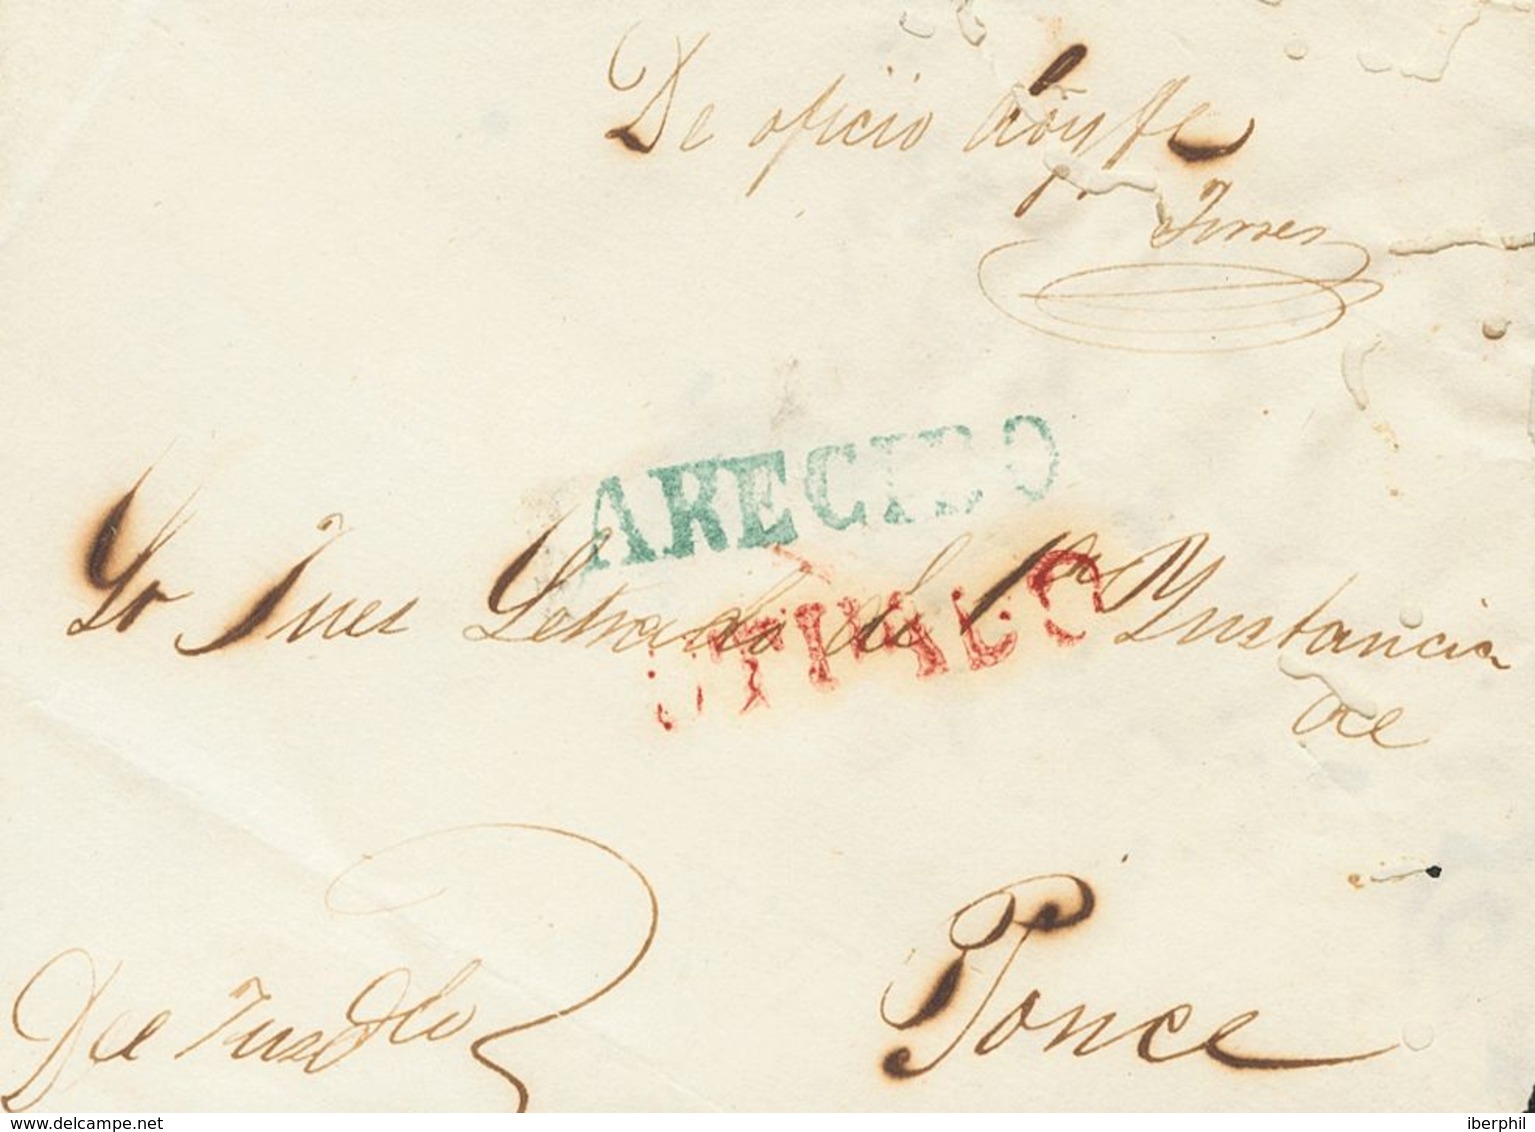 De oficio
Torres
ARECIBO
Sor Juez Letrado de 1ª Ynstancia
de
UTUADO
Ponce
www.delcampe.net
iberphil